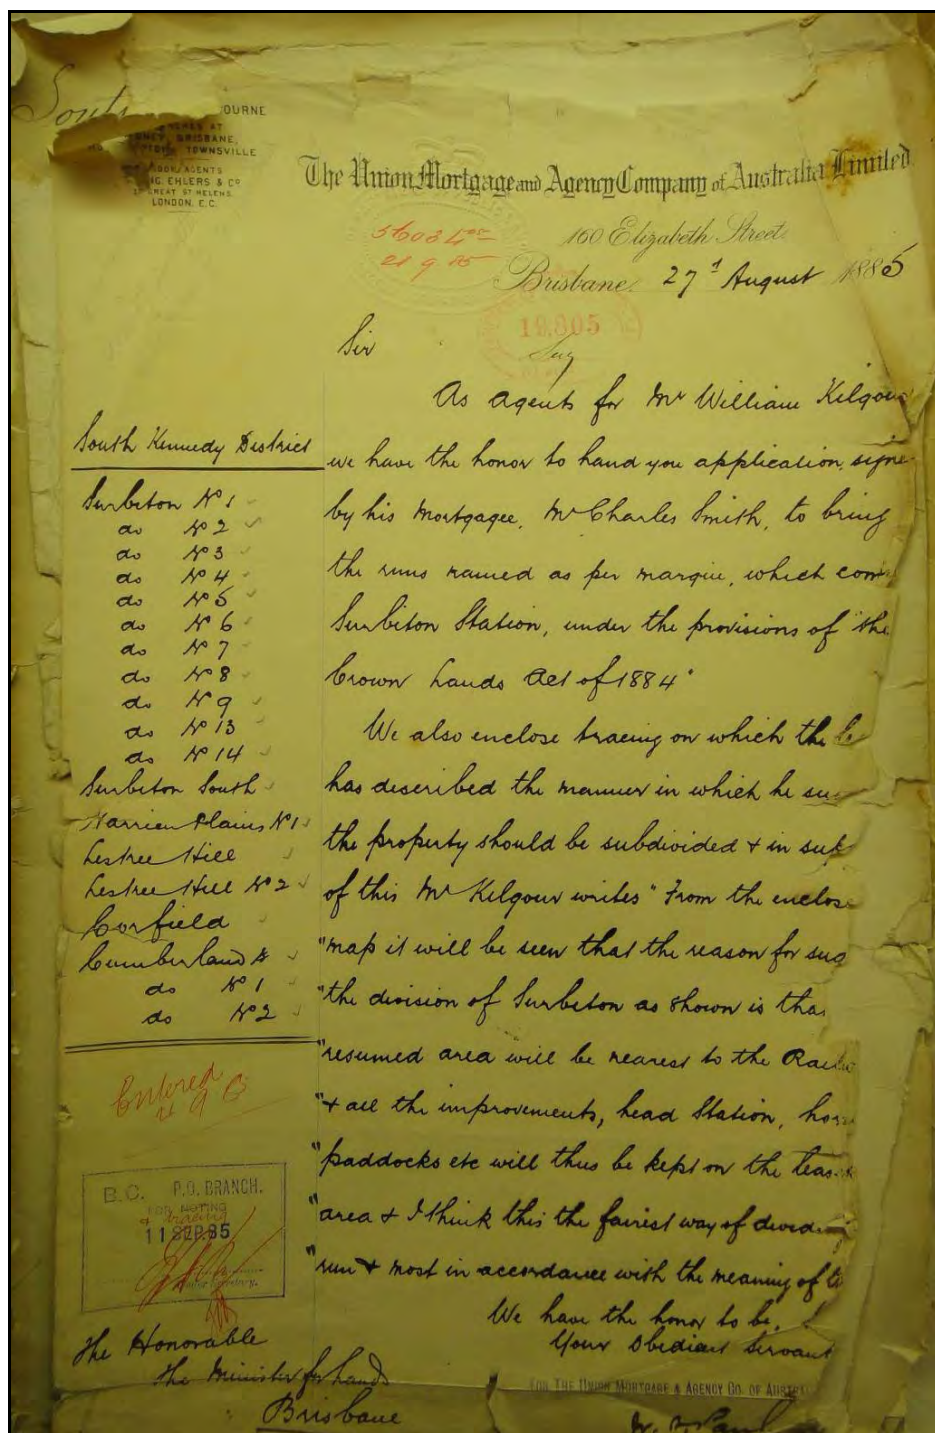 South
OURNE
BRISBANE,
TOWNSVILLE
AGENTS
EHLERS & Co
GREAT ST HELENS
LONDON, E.C.
The Union Mortgage and Agency Company of Australia Limited
160 Elizabeth Street
Brisbane. 27 August 1885
19805
Sir
As agents for Mr William Kilgour
we have the honor to hand you application, signe
by his Mortgagee, Mr Charles Smith, to bring
the runs named as per margin, which com
Surbiton Station, under the provisions of "the
Crown Lands Act of 1884"
We also enclose tracing on which the le
has described the manner in which he su
the property should be subdivided & in sup
of this Mr Kilgour writes "From the enclose
"map it will be seen that the reason for sug
"the division of Surbiton as shown is tha
"resumed area will be nearest to the Railw
"& all the improvements, head Station, hors
"paddocks etc will thus be kept on the leas
"area & I think this the fairest way of dividing
"run & most in accordance with the meaning of t
We have the honor to be,
Your Obedient Servant
FOR THE UNION MORTGAGE & AGENCY CO. OF AUSTRA
South Kennedy District
Surbiton No 1
do No 2
do No 3
do No 4
do No 5
do No 6
do No 7
do No 8
do No 9
do No 13
do No 14
Surbiton South
Plains No 1
Lestree Hill
Lestree Hill No 2
Corfield
Cumberland
do No 1
do No 2
Entered
B.C. P.O. BRANCH.
FOR NOTING
11 SEP 85
The Honorable
The Minister for Lands
Brisbane